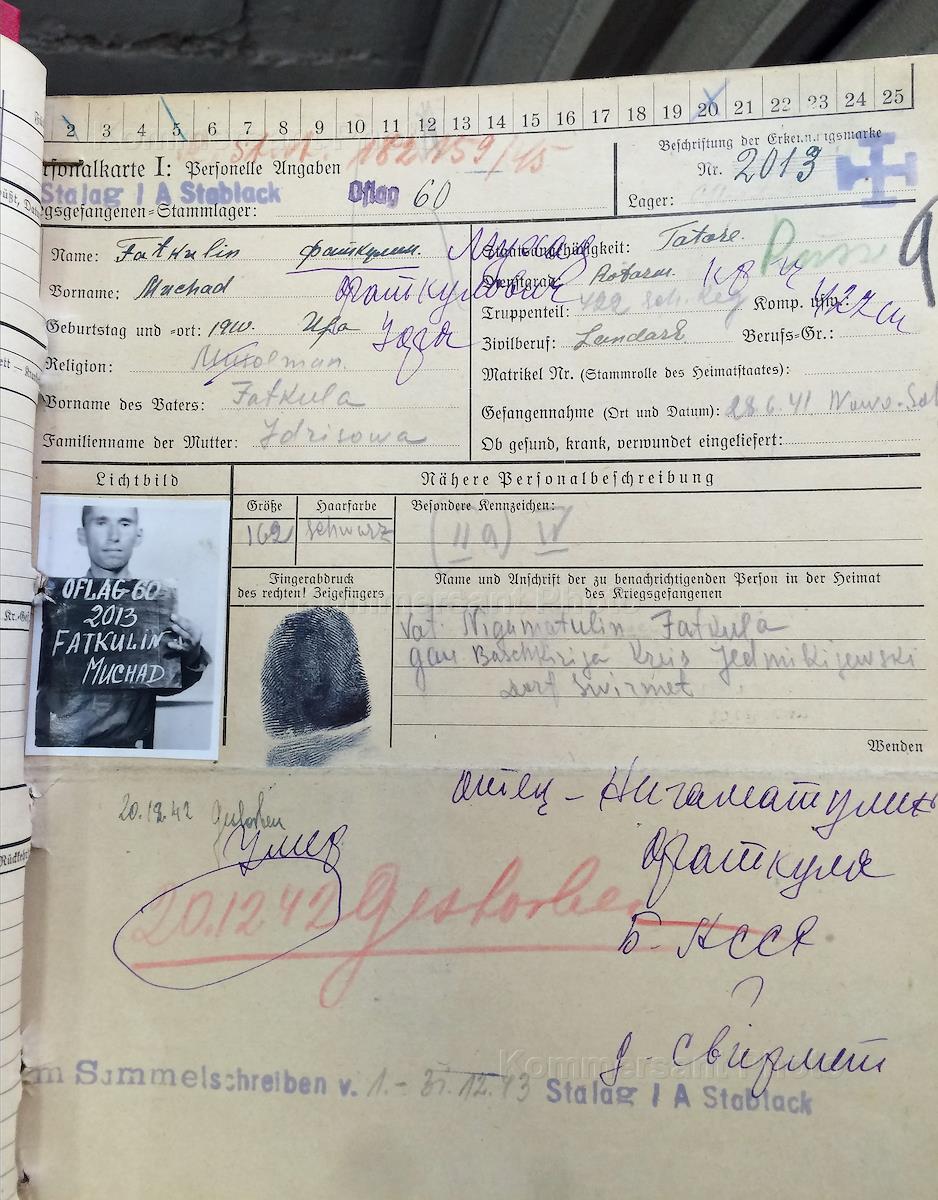 2 3 4 5 6 7 8 9 10 11 12 13 14 15 16 17 18 19 20 21 22 23 24 25
182 159/45
Beschriftung der Erkennungsmarke
rsonalkarte I: Personelle Angaben
Nr. 2013
Stalag I A Stablack Oflag 60
egsgefangenen-Stammlager:
Lager:
Name: Fatkulin Фаткулин
Vorname: Muchad Фаткулович
Geburtstag und -ort: 1910. Ufa Уфа
Religion: Muselman
Vorname des Vaters: Fatkula
Familienname der Mutter: Idrisowa
Staatsangehörigkeit: Tatare.
Dienstgrad: Rotarm.
Truppenteil: 422 sch. Reg Komp. usw.: 422
Zivilberuf: Landarb Berufs-Gr.:
Matrikel Nr. (Stammrolle des Heimatstaates):
Gefangennahme (Ort und Datum): 28.6.41 Nowo-
Ob gesund, krank, verwundet eingeliefert:
Lichtbild
Nähere Personalbeschreibung
Größe Haarfarbe Besondere Kennzeichen:
162 schwarz (II a) IV
Fingerabdruck
des rechten! Zeigefingers
Name und Anschrift der zu benachrichtigenden Person in der Heimat
des Kriegsgefangenen
OFLAG 60
2013
FATKULIN
MUCHAD
Vat. Nigamatulin Fatkula
gau. Baschkirija Kreis
Dorf Swirmet
Wenden
20.12.42 gestorben
Умер
20.12.42 Gestorben
отец - Нигаматулин
Фаткула
Б-АССР
?
д- Свирмет
m Sammelschreiben v. 1.-31.12.43 Stalag I A Stablack
Kommersant Photo